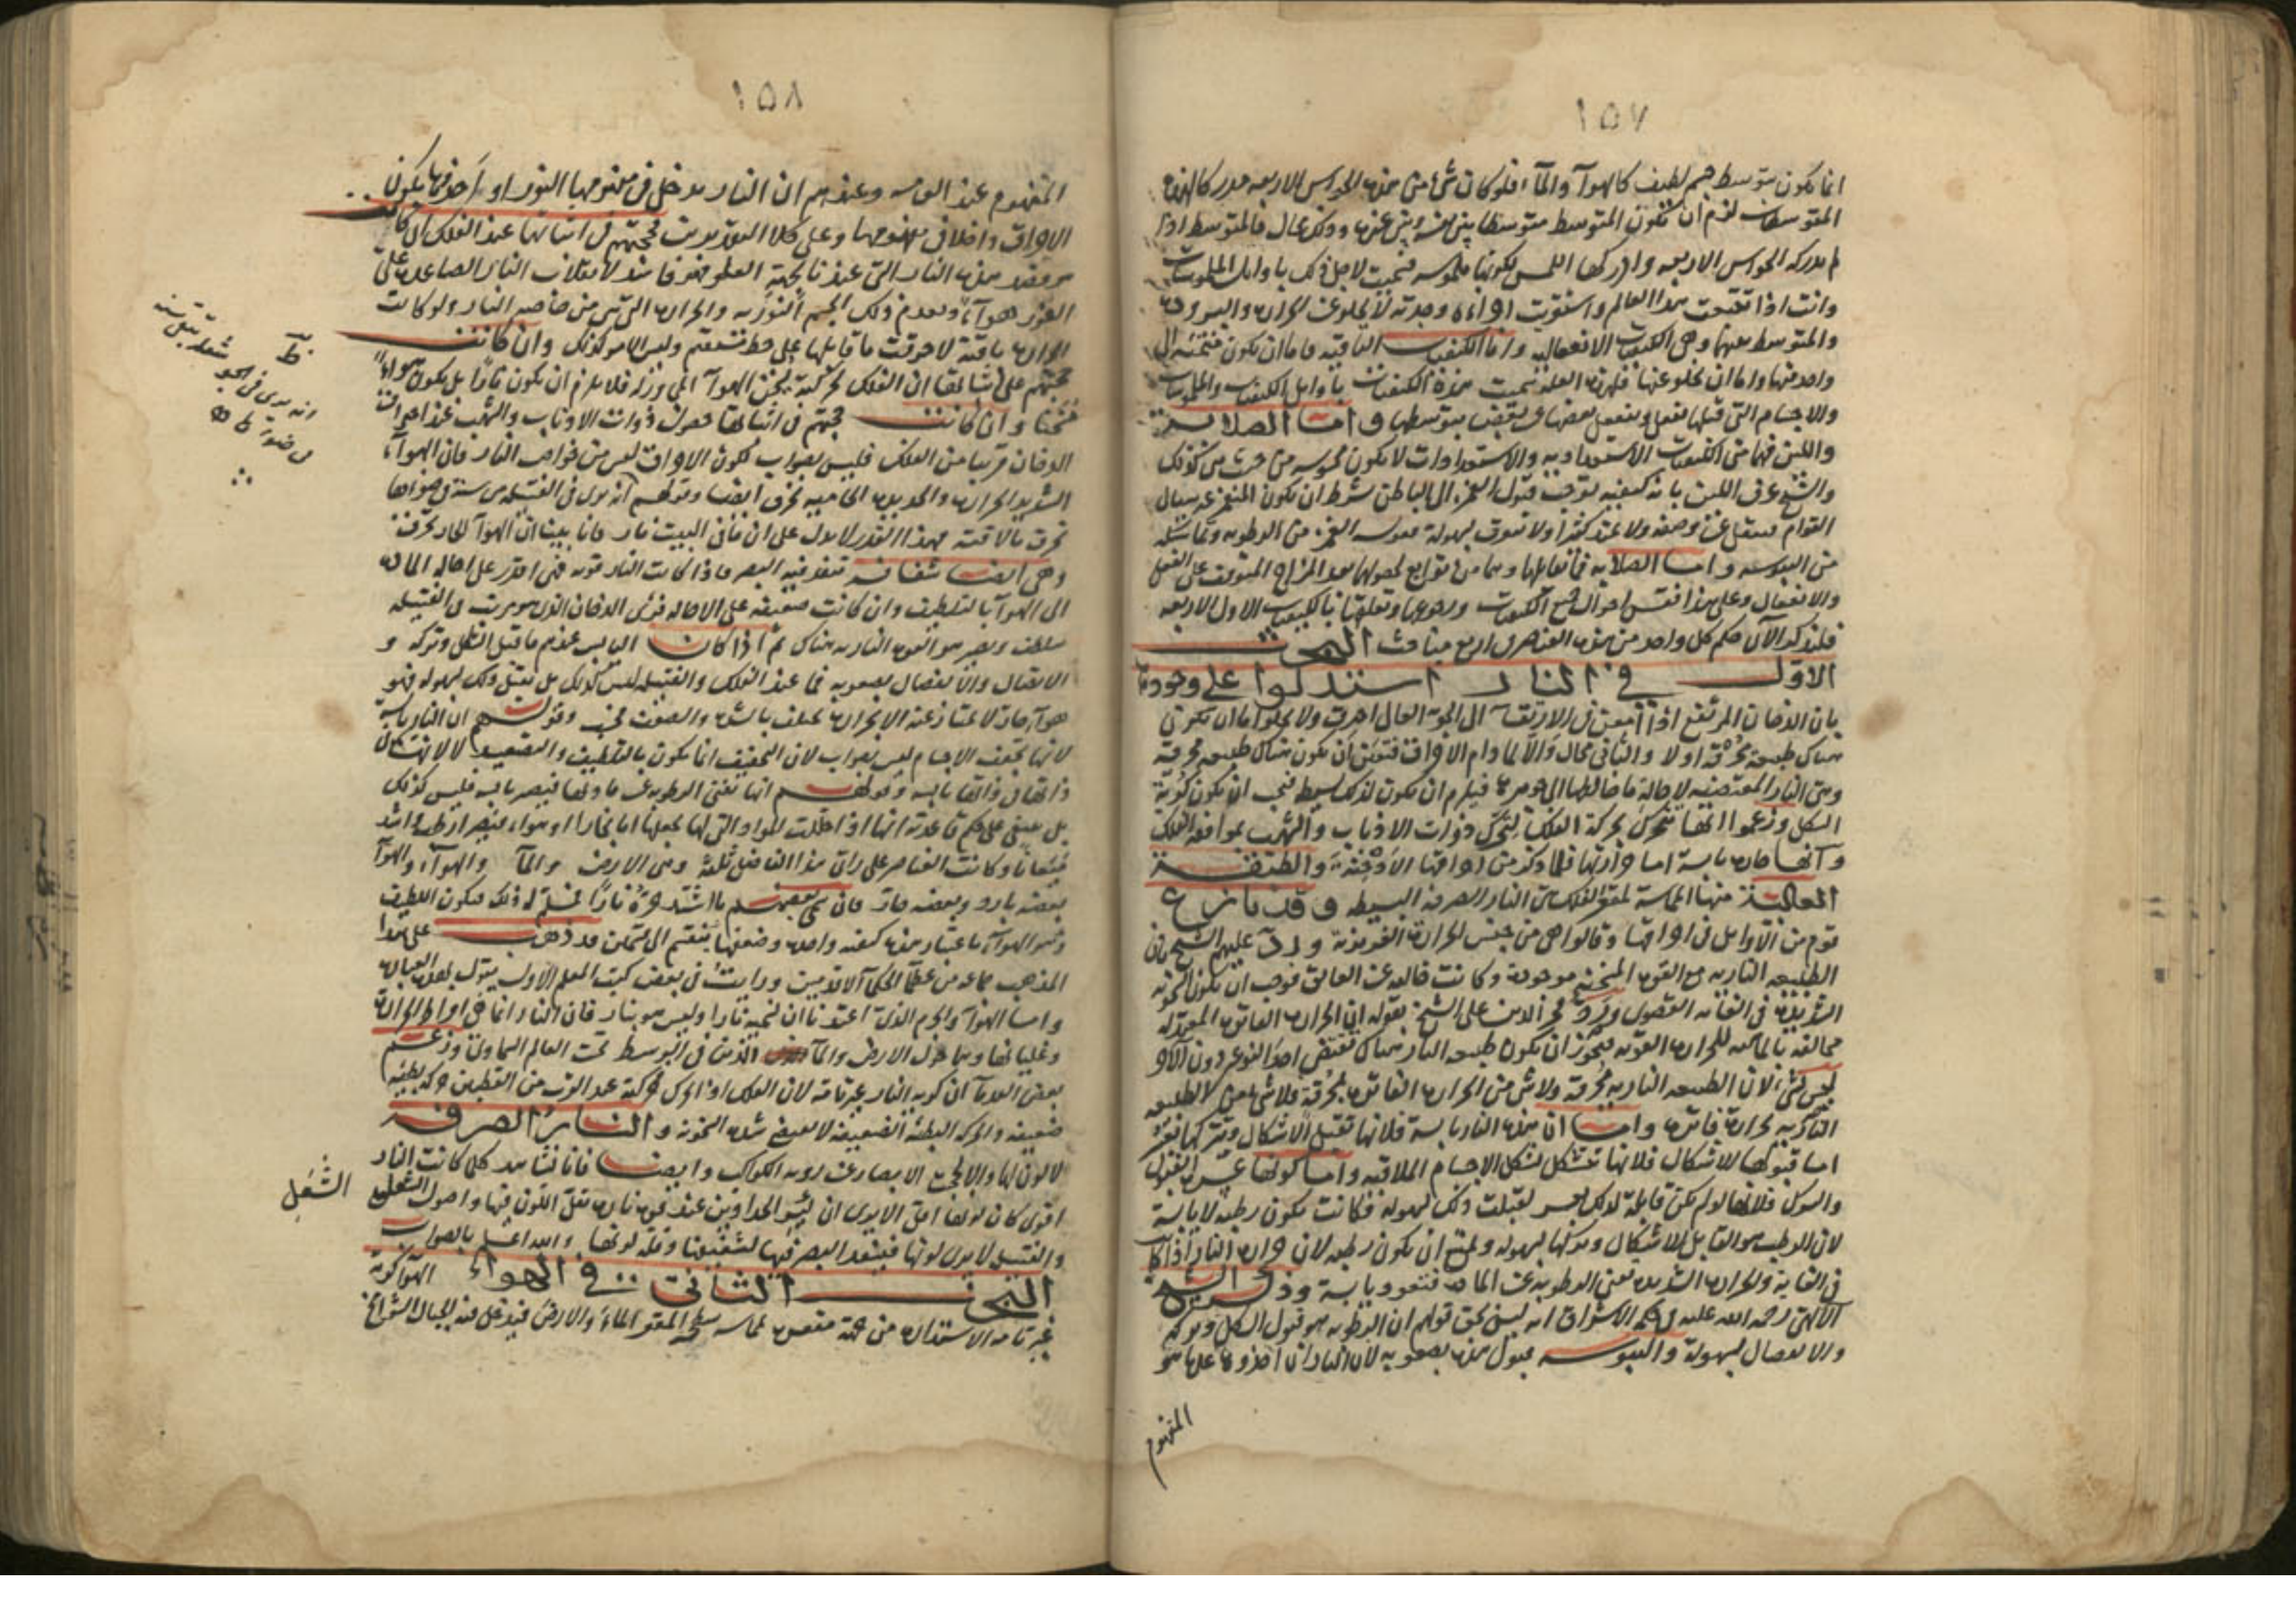 ١٥٧
انما يكون بتوسط جسم لطيف كالهوآء والمآء فلو كان شئ من هذه الحواس الاربعه مدركا لهذه
المتوسطات لزم ان يكون المتوسط متوسطا بين نفسه وبين غيره وذلك محال فالمتوسط اذا
لم يدركه الحواس الاربعه وادركها اللمس لكونها ملموسه فسميت لاجل ذلك باوائل الملموسات
وانت اذا تفحصت هذا العالم واستقريت اجزاءه وجدته لا يخلو عن الحراره والبروده
والمتوسط بينهما وهى الكيفيات الانفعاليه واما الكيفيات الباقيه فاما ان يكون منتميه الى
واحد منها واما ان يخلو عنها فلهذه العله سميت هذه الكيفيات باوايل الكيفيات والملموسات
والاجسام التى قبلها تفعل وينفعل بعضها عن بعض بتوسطها واما الصلابة
واللين فهما من الكيفيات الاستعداديه والاستعدادات لا يكون محسوسه من حيث هى كذلك
والشيخ عرف اللين بانه كيفيه توجب قبول الغمز الى الباطن بشرط ان يكون المنغمز غير سيال
القوام فينتقل عن وضعه ولا يمتد كثيرا ولا يتفرق بسهولة فيوجب الغمز من الرطوبه وتماسكه
من اليبوسه واما الصلابه فما يقابلها وهما من توابع لحصولهما بعد المزاج المتوقف على الفعل
والانفعال وعلى هذا فقس احوال جميع الكيفيات ورجوعها وتعلقها بالكيفيات الاول الاربعه
فلنذكر الآن حكم كل واحد من هذه العناصر فى اربع مباحث البحث
الاول فى النار استدلوا على وجودها
بان الدخان المرتفع اذا امعن فى الارتقآء الى الجو العالى احترق ولا يخلو اما ان يكون
هناك طبيعة محرقة اولا والثانى محال والا لما دام الاحراق فتعين ان يكون هناك طبيعه محرقة
وهى النار المقتضيه لاحالة ما خالطها الى جوهرها فيلزم ان يكون لذلك بسيط فيجب ان يكون كرية
الشكل وزعموا انها تتحرك بحركة الفلك لتحرك ذوات الاذناب والشهب بموافقة الفلك
وانها حاره يابسة اما حرارتها فلما ذكر من احراقها الادخنة والطبقة
العالية منها المماسة لمقعر الفلك هى النار الصرفه البسيطه وقد نازع
قوم من الاوايل فى احراقها وقالوا هى من جنس الحرارة الغريزية ورد عليهم الشيخ بان
الطبيعه الناريه مع القوه المسخنه موجودة وكانت خاليه عن العائق فوجب ان يكون السخونه
الشديدة فى الغايه القصوى ورد فخر الدين على الشيخ بقوله ان الحراره الفاتره المعتدله
مخالفه بالماهيه للحراره القويه فيجوز ان يكون طبيعه النار هناك تقتضى احد النوعين دون الآخر
ليس بشئ لان الطبيعه الناريه محرقة ولا شئ من الحراره الفاتره بمحرقة فلا شئ من الطبيعه
الناريه بحرارة فاتره واما ان هذه النار يابسة فلانها تقبل الاشكال وتتركها بعسر
اما قبولها للاشكال فلانها تتشكل بشكل الاجسام الملاقيه واما كونها عسر القبول
والترك فلانها لو لم تكن قابلة لذلك بعسر لقبلت ذلك بسهوله فكانت يكون رطبه لا يابسة
لان الرطب هو القابل للاشكال وتركها بسهوله ويمتنع ان يكون رطبه لان حراره النار اذا كانت
فى الغاية والحراره الشديده تفنى الرطوبه عن الماده فتعود يابسة وذكر الشيخ
الالهى رحمه الله عليه فى حكمه الاشراق انه ليس بحق قولهم ان الرطوبه هو قبول الشكل وتركه
والانفصال بسهولة واليبوسه قبول هذه بصعوبه لان النار ان اخذوها على ما هو
المفهوم
١٥٨
المفهوم عند العامه وعندهم ان النار يدخل فى مفهومها النور او اخذوها بكون
الاحراق داخلا فى مفهومها وعلى كلا التقديرين فحجتهم فى اثباتها عند الفلك ان كانت
هو بعد هذه النار التى عندنا بجهة العلو فهو فاسد لانقلاب النار الصاعده على
الفور هوآء وبعدم ذلك الجسم النوريه والحراره التى هى من خاصيه النار ولو كانت
الحراره باقية لاحرقت ما قابلها على خط مستقيم وليس الامر كذلك وان كانت
حجتهم على اثباتها ان الفلك لحركته يسخن الهوآء الى ورائه فلا يلزم ان يكون نارا بل يكون هوآء
متسخنا وان كانت حجتهم فى اثباتها حصول ذوات الاذناب والشهب عند احراق
الدخان قريبا من الفلك فليس بصواب لكون الاحراق ليس من خواص النار فان الهوآء
الشديد الحراره والحديده الحاميه تحرق ايضا وقولهم انه يرى فى الفتيله من ستة فى ضوءها
تحرق ملاقيه فهذا القدر لا يدل على ان مافى البيت نار فانا بينا ان الهوآء الحار يحرق
وهى ايضا شفافه تنفذ فيه البصر فاذا كانت النار قويه فهى اقدر على احاله الماده
الى الهوآء بالتلطيف وان كانت ضعيفه على الاحاله فترى الدخان الذى هو مرتب فى الفتيله
يتلطف ويصير هو القوه الناريه هناك ثم اذا كان اليابس عندهم ما قبل الشكل وتركه و
الاتصال والانفصال بصعوبه فما عند الفلك والفتيله ليس كذلك بل يقبل ذلك بسهوله فهو
هوآء حار لا يمتاز عنه الا بحراره تختلف بالشده والضعف فحسب وقولهم ان النار يابسة
لانها تجفف الاجسام ليس بصواب لان التجفيف انما يكون بالتلطيف والتصعيد لا لانها كان
ذاتها فى ذاتها يابسه وقولهم انها تفنى الرطوبه عن مادتها فتصير يابسه فليس كذلك
بل ينبغى على حكم قاعدته انها اذا حللت المواد التى لها يجعلها اما بخارا او هوآء فتصير ارطب واشد
ميعانا وكانت العناصر على راى هذا الفاضل ثلثة وهى الارض والمآء والهوآء والهوآء
بعضه بارد وبعضه حار فان سمى بعضهم ما اشتد حره نارا فمسلم له ذلك فيكون اللطيف
وهو الهوآء باعتبار هذه كيفيه واحده وضعفها ينقسم الى قسمين قد ذهب على هذا
المذهب جماعه من عظمآء الحكمآء الاقدمين ورايت فى بعض كتب المعلم الاول يقول بهذه العباره
واما الهوآء والجرم الذى اعتدنا ان نسميه نارا وليس هو بنار فان النار انما هى افراط الحرارة
وغليانها وهما حول الارض والمآء الذين فى الوسط تحت العالم السماوى وزعم
بعض القدمآء ان كرية النار غير تامه لان الفلك اذا تحرك فحركته عند القرب من القطبين حركة بطيئه
ضعيفه والحركه البطيئه الضعيفه لا تقتضى شده السخونه والنار الصرفه
لا لون لها والا لحجبت الابصار عن رويه الكواكب وايضا فانا نشاهد كلما كانت النار
اقوى كان لونها اقل الا يرى ان كير الحدادين عند قوه ناره يقل اللون فيها واصول الشعل
والفتيل لا يرى لونها فينفذ البصر فيها لشفيفها وقلة لونها والله اعلم بالصواب
البحث الثانى فى الهواء الهوآء كرية
غير تامه الاستداره من جهة مقعره لمماسه سطحه المقعر المآء والارض فيدخل فيه الجبال الشوامخ
ظ
الشعل